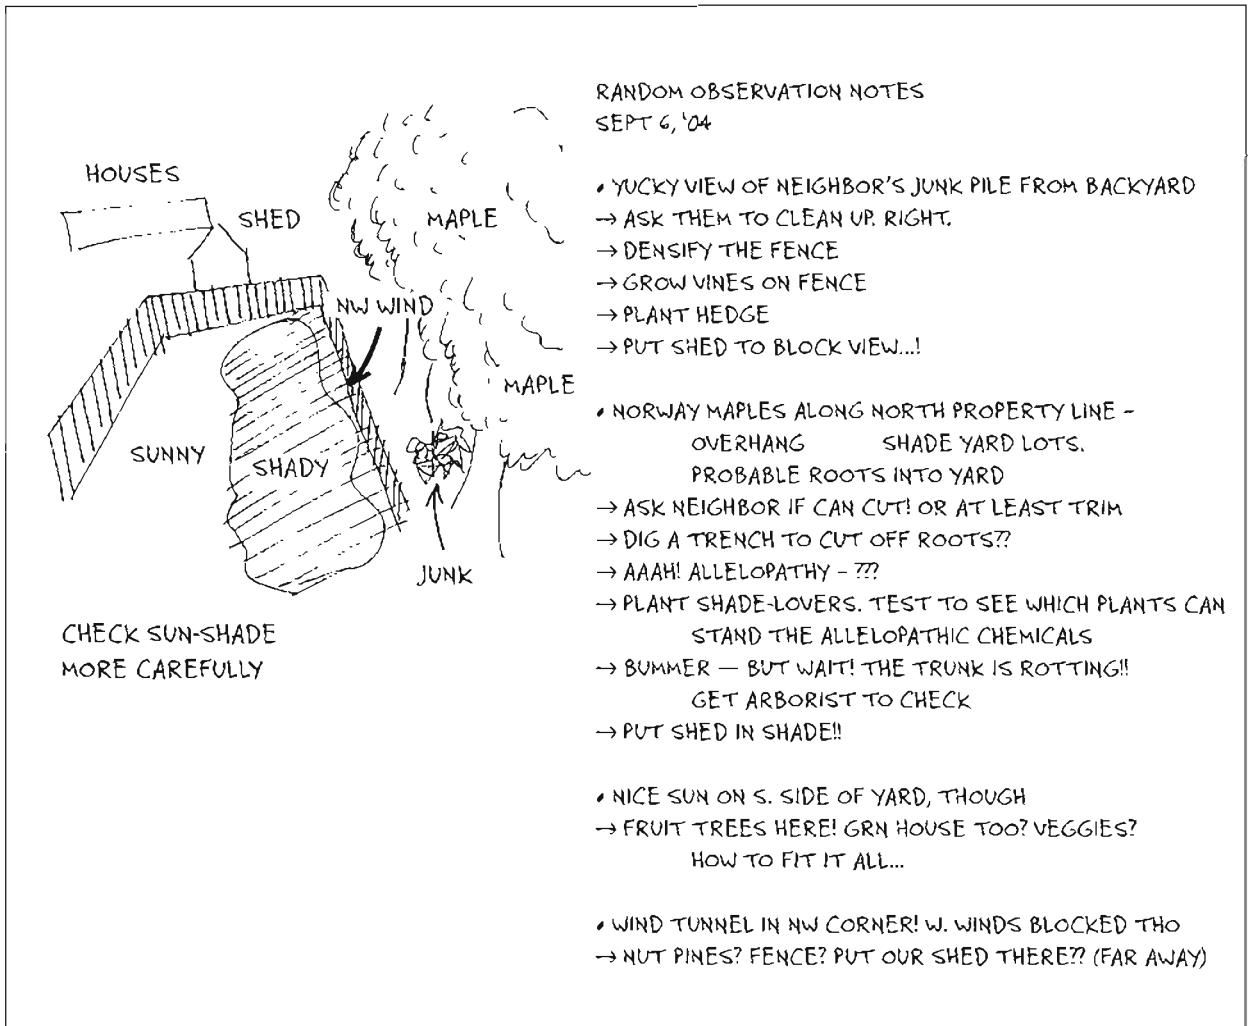 RANDOM OBSERVATION NOTES
SEPT 6, '04
HOUSES
SHED
MAPLE
NW WIND
MAPLE
SUNNY
SHADY
JUNK
CHECK SUN-SHADE
MORE CAREFULLY
• YUCKY VIEW OF NEIGHBOR'S JUNK PILE FROM BACKYARD
→ ASK THEM TO CLEAN UP. RIGHT.
→ DENSIFY THE FENCE
→ GROW VINES ON FENCE
→ PLANT HEDGE
→ PUT SHED TO BLOCK VIEW...!
• NORWAY MAPLES ALONG NORTH PROPERTY LINE –
OVERHANG SHADE YARD LOTS.
PROBABLE ROOTS INTO YARD
→ ASK NEIGHBOR IF CAN CUT! OR AT LEAST TRIM
→ DIG A TRENCH TO CUT OFF ROOTS??
→ AAAH! ALLELOPATHY – ???
→ PLANT SHADE-LOVERS. TEST TO SEE WHICH PLANTS CAN
STAND THE ALLELOPATHIC CHEMICALS
→ BUMMER — BUT WAIT! THE TRUNK IS ROTTING!!
GET ARBORIST TO CHECK
→ PUT SHED IN SHADE!!
• NICE SUN ON S. SIDE OF YARD, THOUGH
→ FRUIT TREES HERE! GRN HOUSE TOO? VEGGIES?
HOW TO FIT IT ALL...
• WIND TUNNEL IN NW CORNER! W. WINDS BLOCKED THO
→ NUT PINES? FENCE? PUT OUR SHED THERE?? (FAR AWAY)